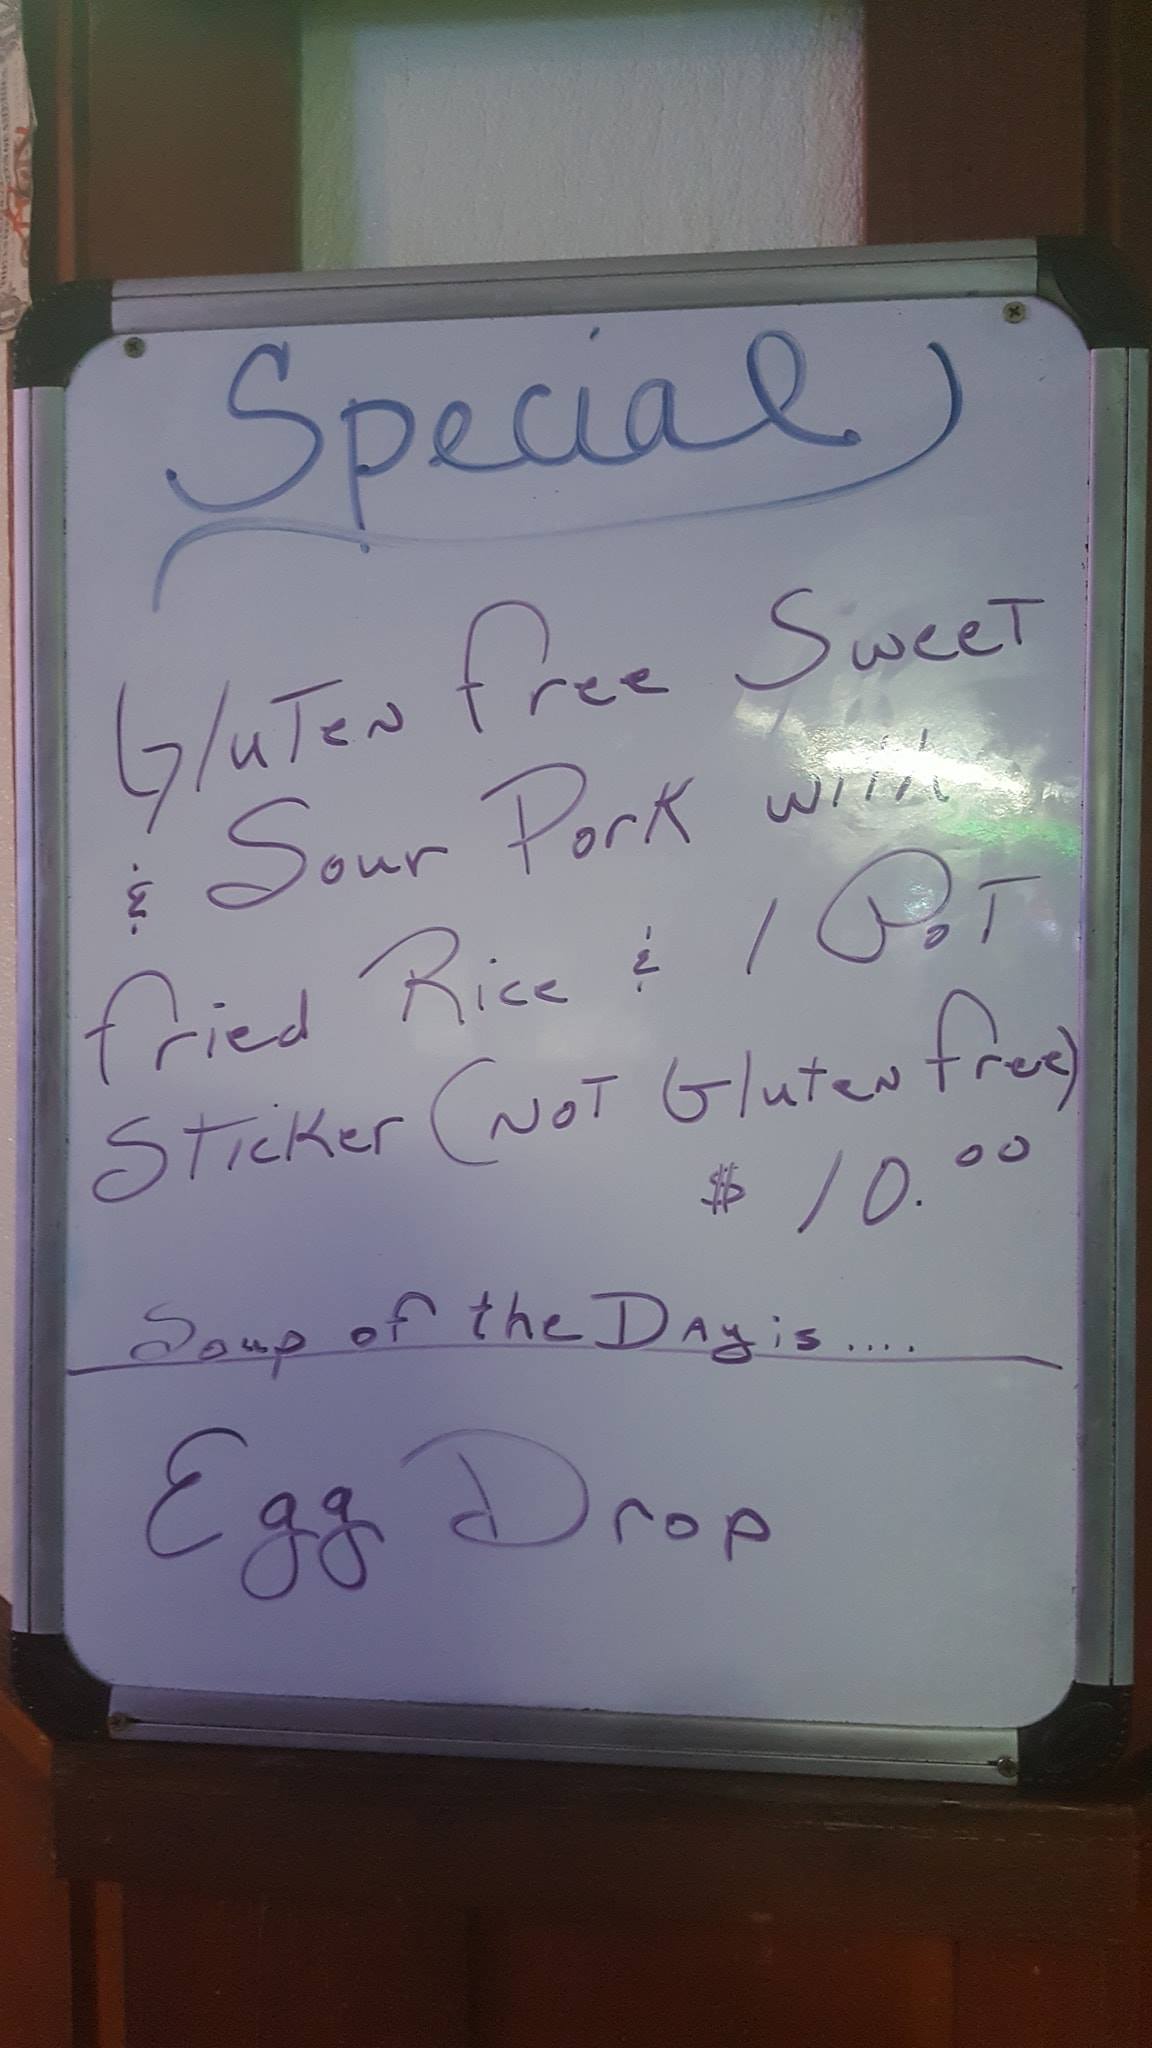 Special
Gluten free Sweet
& Sour Pork with
fried Rice & 1 Pot
Sticker (Not Gluten free)
$ 10.00
Soup of the Day is ....
Egg Drop